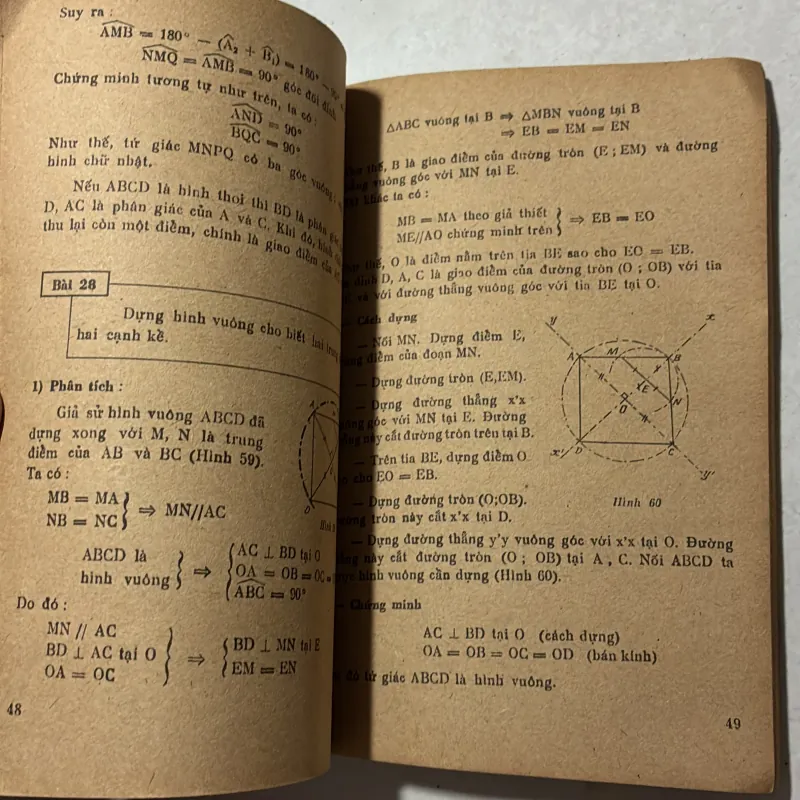 Suy ra :
AMB = 180° — (A₂ + B₁) = 180° —
NMQ = AMB = 90° góc đối đỉnh
Chứng minh tương tự như trên, ta có :
AND = 90°
BQC = 90°
Như thế, tứ giác MNPQ có ba góc vuông :
hình chữ nhật.
Nếu ABCD là hình thoi thì BD là phân giác
D, AC là phân giác của A và C. Khi đó, hình
thu lại còn một điểm, chính là giao điểm của
Bài 28
Dựng hình vuông cho biết hai trung
hai cạnh kề.
1) Phân tích :
Giả sử hình vuông ABCD đã
dựng xong với M, N là trung
điểm của AB và BC (Hình 59).
Ta có :
MB = MA
NB = NC } ⇒ MN//AC
ABCD là
hình vuông } ⇒ { AC ⊥ BD tại O
OA = OB = OC =
ABC = 90°
Do đó :
MN // AC
BD ⊥ AC tại O
OA = OC } ⇒ { BD ⊥ MN tại E
EM = EN
A
D
48
△ABC vuông tại B ⇒ △MBN vuông tại B
⇒ EB = EM = EN
thế, B là giao điểm của đường tròn (E ; EM) và đường
vuông góc với MN tại E.
khác ta có :
MB = MA theo giả thiết
ME//AO chứng minh trên } ⇒ EB = EO
thế, O là điểm nằm trên tia BE sao cho EO = EB.
đỉnh D, A, C là giao điểm của đường tròn (O ; OB) với tia
và với đường thẳng vuông góc với tia BE tại O.
Cách dựng
— Nối MN. Dựng điểm E,
điểm của đoạn MN.
— Dựng đường tròn (E,EM).
— Dựng đường thẳng x'x
góc với MN tại E. Đường
này cắt đường tròn trên tại B.
— Trên tia BE, dựng điểm O
cho EO = EB.
— Dựng đường tròn (O;OB).
tròn này cắt x'x tại D.
— Dựng đường thẳng y'y vuông góc với x'x tại O. Đường
này cắt đường tròn (O ; OB) tại A , C. Nối ABCD ta
hình vuông cần dựng (Hình 60).
y
x
A
M
B
E
N
O
D
C
x'
y'
Hình 60
— Chứng minh
AC ⊥ BD tại O (cách dựng)
OA = OB = OC = OD (bán kính)
đó tứ giác ABCD là hình vuông.
49